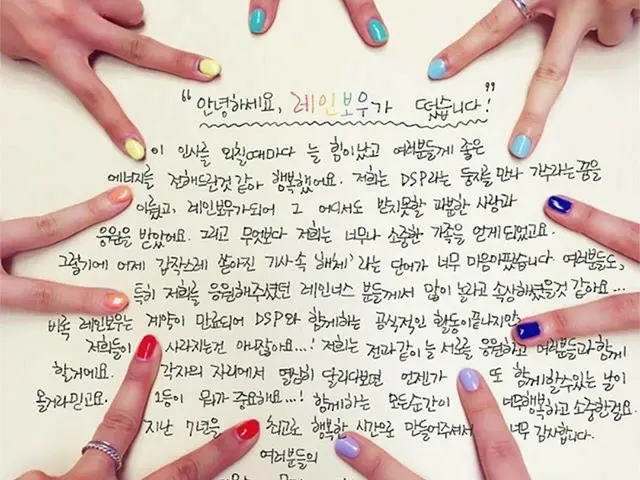 “안녕하세요, 레인보우가 떴습니다!”
이 인사를 외칠때마다 늘 힘이났고 여러분들게 좋은
에너지를 전해드린것 같아 행복했어요. 저희는 DSP라는 둥지를 만나 가수라는 꿈을
이뤘고, 레인보우가되어 그 어디서도 받지못할 과분한 사랑과
응원을 받았어요. 그리고 무엇보다 저희는 너무나 소중한 가족을 얻게되었고요.
그렇기에 어제 갑작스레 쏟아진 기사 속 '해체' 라는 단어가 너무 마음아팠습니다. 여러분들도,
특히 저희를 응원해주셨던 레인너스 분들께서 많이 놀라고 속상하셨을것 같아요...
비록 레인보우는 계약이 만료되어 DSP와 함께하는 공식적인 활동이 끝나지만,
저희들이 사라지는건 아니잖아요...! 저희는 전과같이 늘 서로를 응원하고 여러분들과 함께
할거에요. 각자의 자리에서 열심히 달리다보면 언젠가 또 함께할수있는 날이
올거라믿고요. 1등이 뭐가 중요하요...! 함께하는 모든순간이 너무행복하고 소중한걸요.
지난 7년을 최고로 행복한 시간으로 만들어주셔서 너무 감사합니다.
여러분들의